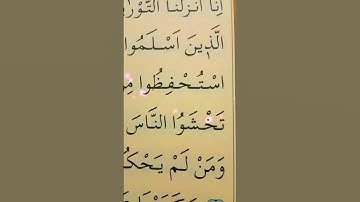 اِنَّا اَنْزَلْنَا التَّوْرٰ
الَّذ۪ينَ اَسْلَمُوا
اسْتُحْفِظُوا مِنْ
تَخْشَوُا النَّاسَ
وَمَنْ لَمْ يَحْكُ